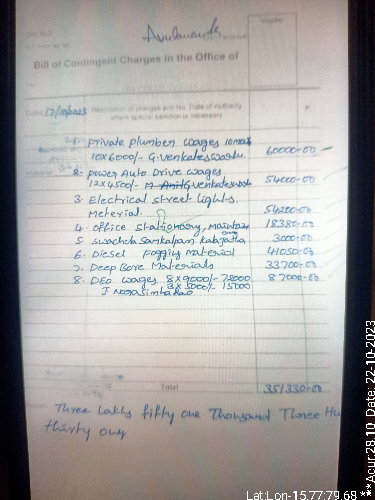 Bill of Contingent Charges in the Office of
Dated 17/10/2023 Description of charges and No. Date of Authority
where special sanction is necessary
1. private plumber wages 10 months
10x6000/- G. Venkateswarlu 60000-00
2. power Auto Drive wages
12x4500/- M. Anil G Venkateswarlu 54000-00
3. Electrical street lights.
Meterial. 54200-00
4. office stationory, 18380-00
5. swachda Sankalpam 3000-00
6. Diesel Fogging material 41050-00
7. Deep Bore Materials 33700-00
8. DEO wages 8x9000/- 72000 87000-00
3x5000/- 15000
J Narasimha Rao
Total 351330-00
Three Lakhs fifty one Thousand Three Hu
thirty only
Lat:Lon-15.77:79.68 ***Acur:28.10 Date: 22-10-2023